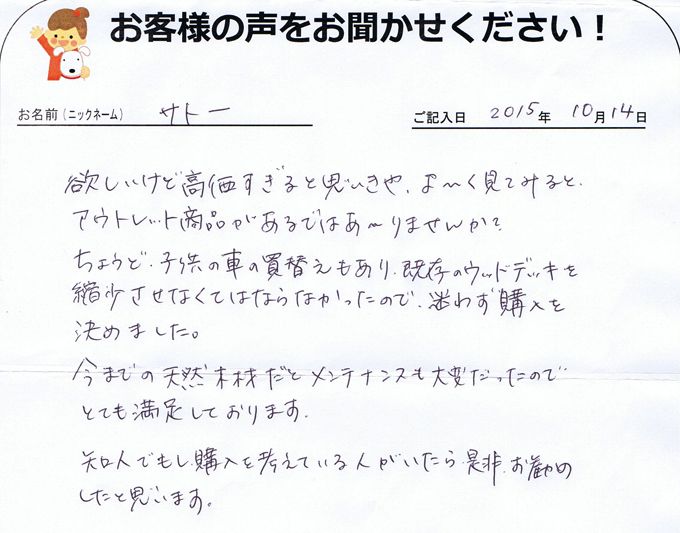 お客様の声をお聞かせください！
お名前（ニックネーム） サトー ご記入日 2015年 10月14日
欲しいけど高価すぎると思いきや、よ～く見てみると、
アウトレット商品があるではあ～りませんか？
ちょうど、子供の車の買替えもあり、既存のウッドデッキを
縮少させなくてはならなかったので、迷わず購入を
決めました。
今までの天然木材だとメンテナンスも大変だったので
とても満足しております。
知人でもし購入を考えている人がいたら是非、お勧め
したと思います。